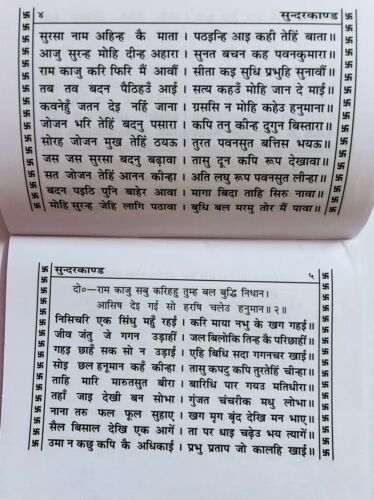 ४ सुन्दरकाण्ड
सुरसा नाम अहिन्ह कै माता। पठइन्हि आइ कही तेहिं बाता॥
आजु सुरन्ह मोहि दीन्ह अहारा। सुनत बचन कह पवनकुमारा॥
राम काजु करि फिरि मैं आवौं। सीता कइ सुधि प्रभुहि सुनावौं॥
तब तव बदन पैठिहउँ आई। सत्य कहउँ मोहि जान दे माई॥
कवनेहुँ जतन देइ नहिं जाना। ग्रससि न मोहि कहेउ हनुमाना॥
जोजन भरि तेहिं बदनु पसारा। कपि तनु कीन्ह दुगुन बिस्तारा॥
सोरह जोजन मुख तेहिं ठयऊ। तुरत पवनसुत बत्तिस भयऊ॥
जस जस सुरसा बदनु बढ़ावा। तासु दून कपि रूप देखावा॥
सत जोजन तेहिं आनन कीन्हा। अति लघु रूप पवनसुत लीन्हा॥
बदन पइठि पुनि बाहेर आवा। मागा बिदा ताहि सिरु नावा॥
मोहि सुरन्ह जेहि लागि पठावा। बुधि बल मरमु तोर मैं पावा॥
सुन्दरकाण्ड ५
दो०—राम काजु सबु करिहहु तुम्ह बल बुद्धि निधान।
आसिष देइ गई सो हरषि चलेउ हनुमान॥२॥
निसिचरि एक सिंधु महुँ रहई। करि माया नभु के खग गहई॥
जीव जंतु जे गगन उड़ाहीं। जल बिलोकि तिन्ह कै परिछाहीं॥
गहइ छाहँ सक सो न उड़ाई। एहि बिधि सदा गगनचर खाई॥
सोइ छल हनूमान कहँ कीन्हा। तासु कपटु कपि तुरतेहिं चीन्हा॥
ताहि मारि मारुतसुत बीरा। बारिधि पार गयउ मतिधीरा॥
तहाँ जाइ देखी बन सोभा। गुंजत चंचरीक मधु लोभा॥
नाना तरु फल फूल सुहाए। खग मृग बृंद देखि मन भाए॥
सैल बिसाल देखि एक आगें। ता पर धाइ चढ़ेउ भय त्यागें॥
उमा न कछु कपि कै अधिकाई। प्रभु प्रताप जो कालहि खाई॥